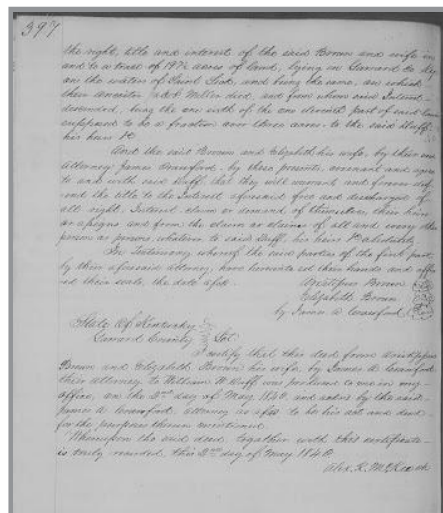 397
the right, title and interest of the said Brown and wife in
and to a tract of 197½ acres of land, lying in Garrard to Ky
on the waters of Paint Lick, and being the same, on which
their ancestor Miller died, and from whom said Interest
descended, being the one ninth of the one eleventh part of said land
supposed to be a fraction over three acres. to the said Duff,
his heirs &c
And the said Brown and Elizabeth his wife, by their
Attorney James Crawford, by these presents, covenant and agree
to and with said Duff, that they will warrant and forever def
end the title to the Interest aforesaid free and discharged of
all right, Interest claim or demand of themselves, their heirs
or assigns and from the claim or claims of all and every other
person or persons, whatever to said Duff, his heirs &c absolutely
In Testimony whereof the said parties of the first part,
by their aforesaid attorney, have hereunto set their hands and affix
ed their seals, the date afsd.
Brown
Elizabeth Brown
by James A Crawford
State Of Kentucky
Garrard County Sct.
I certify that this deed from
Brown and Elizabeth Brown his wife, by James A Crawford
their attorney to William W. Duff was produced to me in my
office, on the 2nd day of May 1840, and acknd by the said
James A Crawford, attorney as afsd to be his act and deed
for the purposes therein mentioned.
Whereupon the said deed, together with this certificate
is truly recorded this 2nd day of May 1840
Alex. R. McKee clk